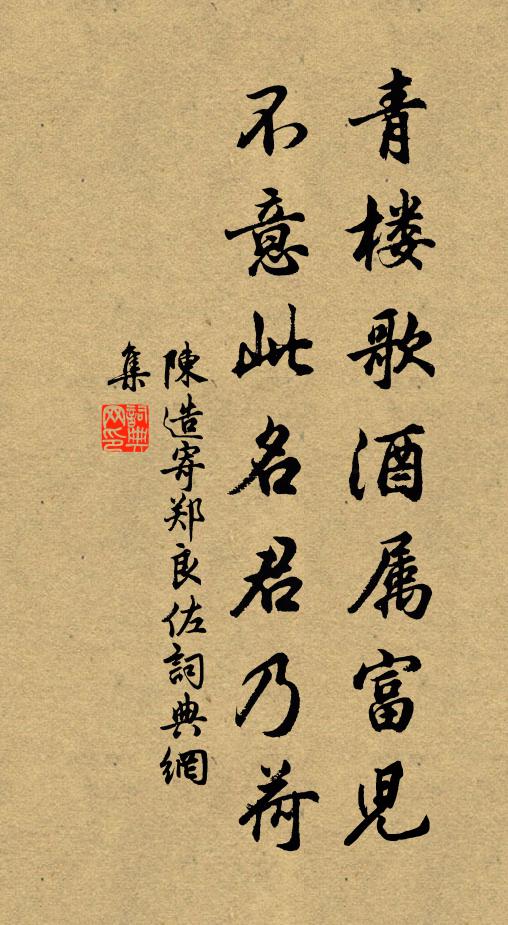 青楼歌酒属富児
不意此名君乃荷
陳造寄郑良佐詞典網
集
詞典網印